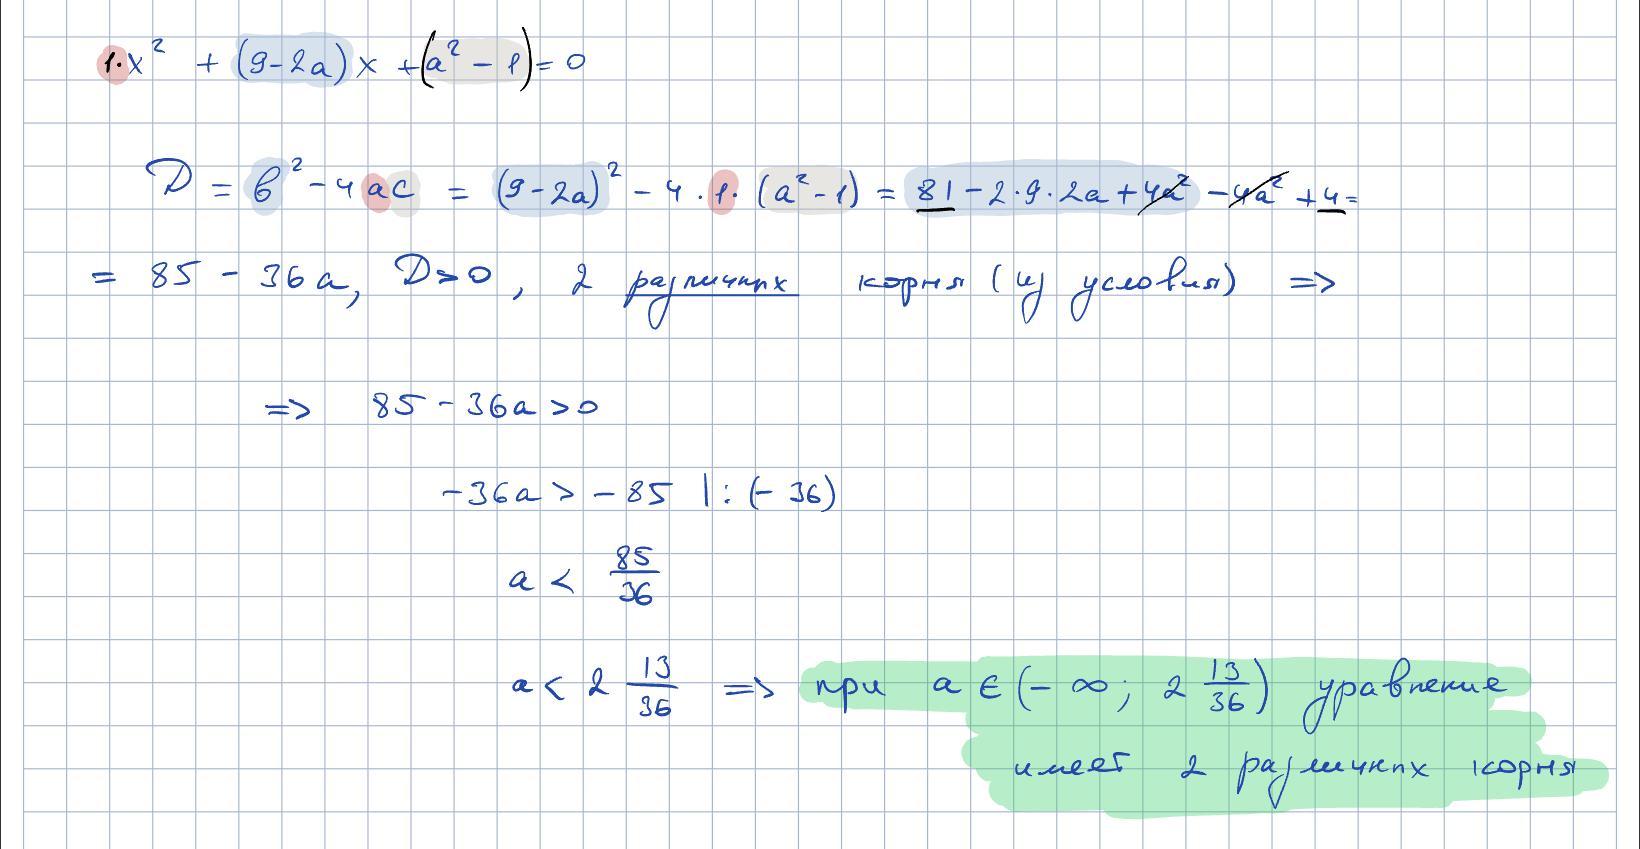 1·x² + (9-2a)x + (a² - 1) = 0
D = b² - 4ac = (9-2a)² - 4·1·(a²-1) = 81 - 2·9·2a + 4a² - 4a² + 4 =
= 85 - 36a, D>0, 2 различных корня (из условия) =>
=> 85 - 36a > 0
-36a > -85 |:(-36)
a < 85/36
a < 2 13/36 => при a ∈ (-∞; 2 13/36) уравнение
имеет 2 различных корня